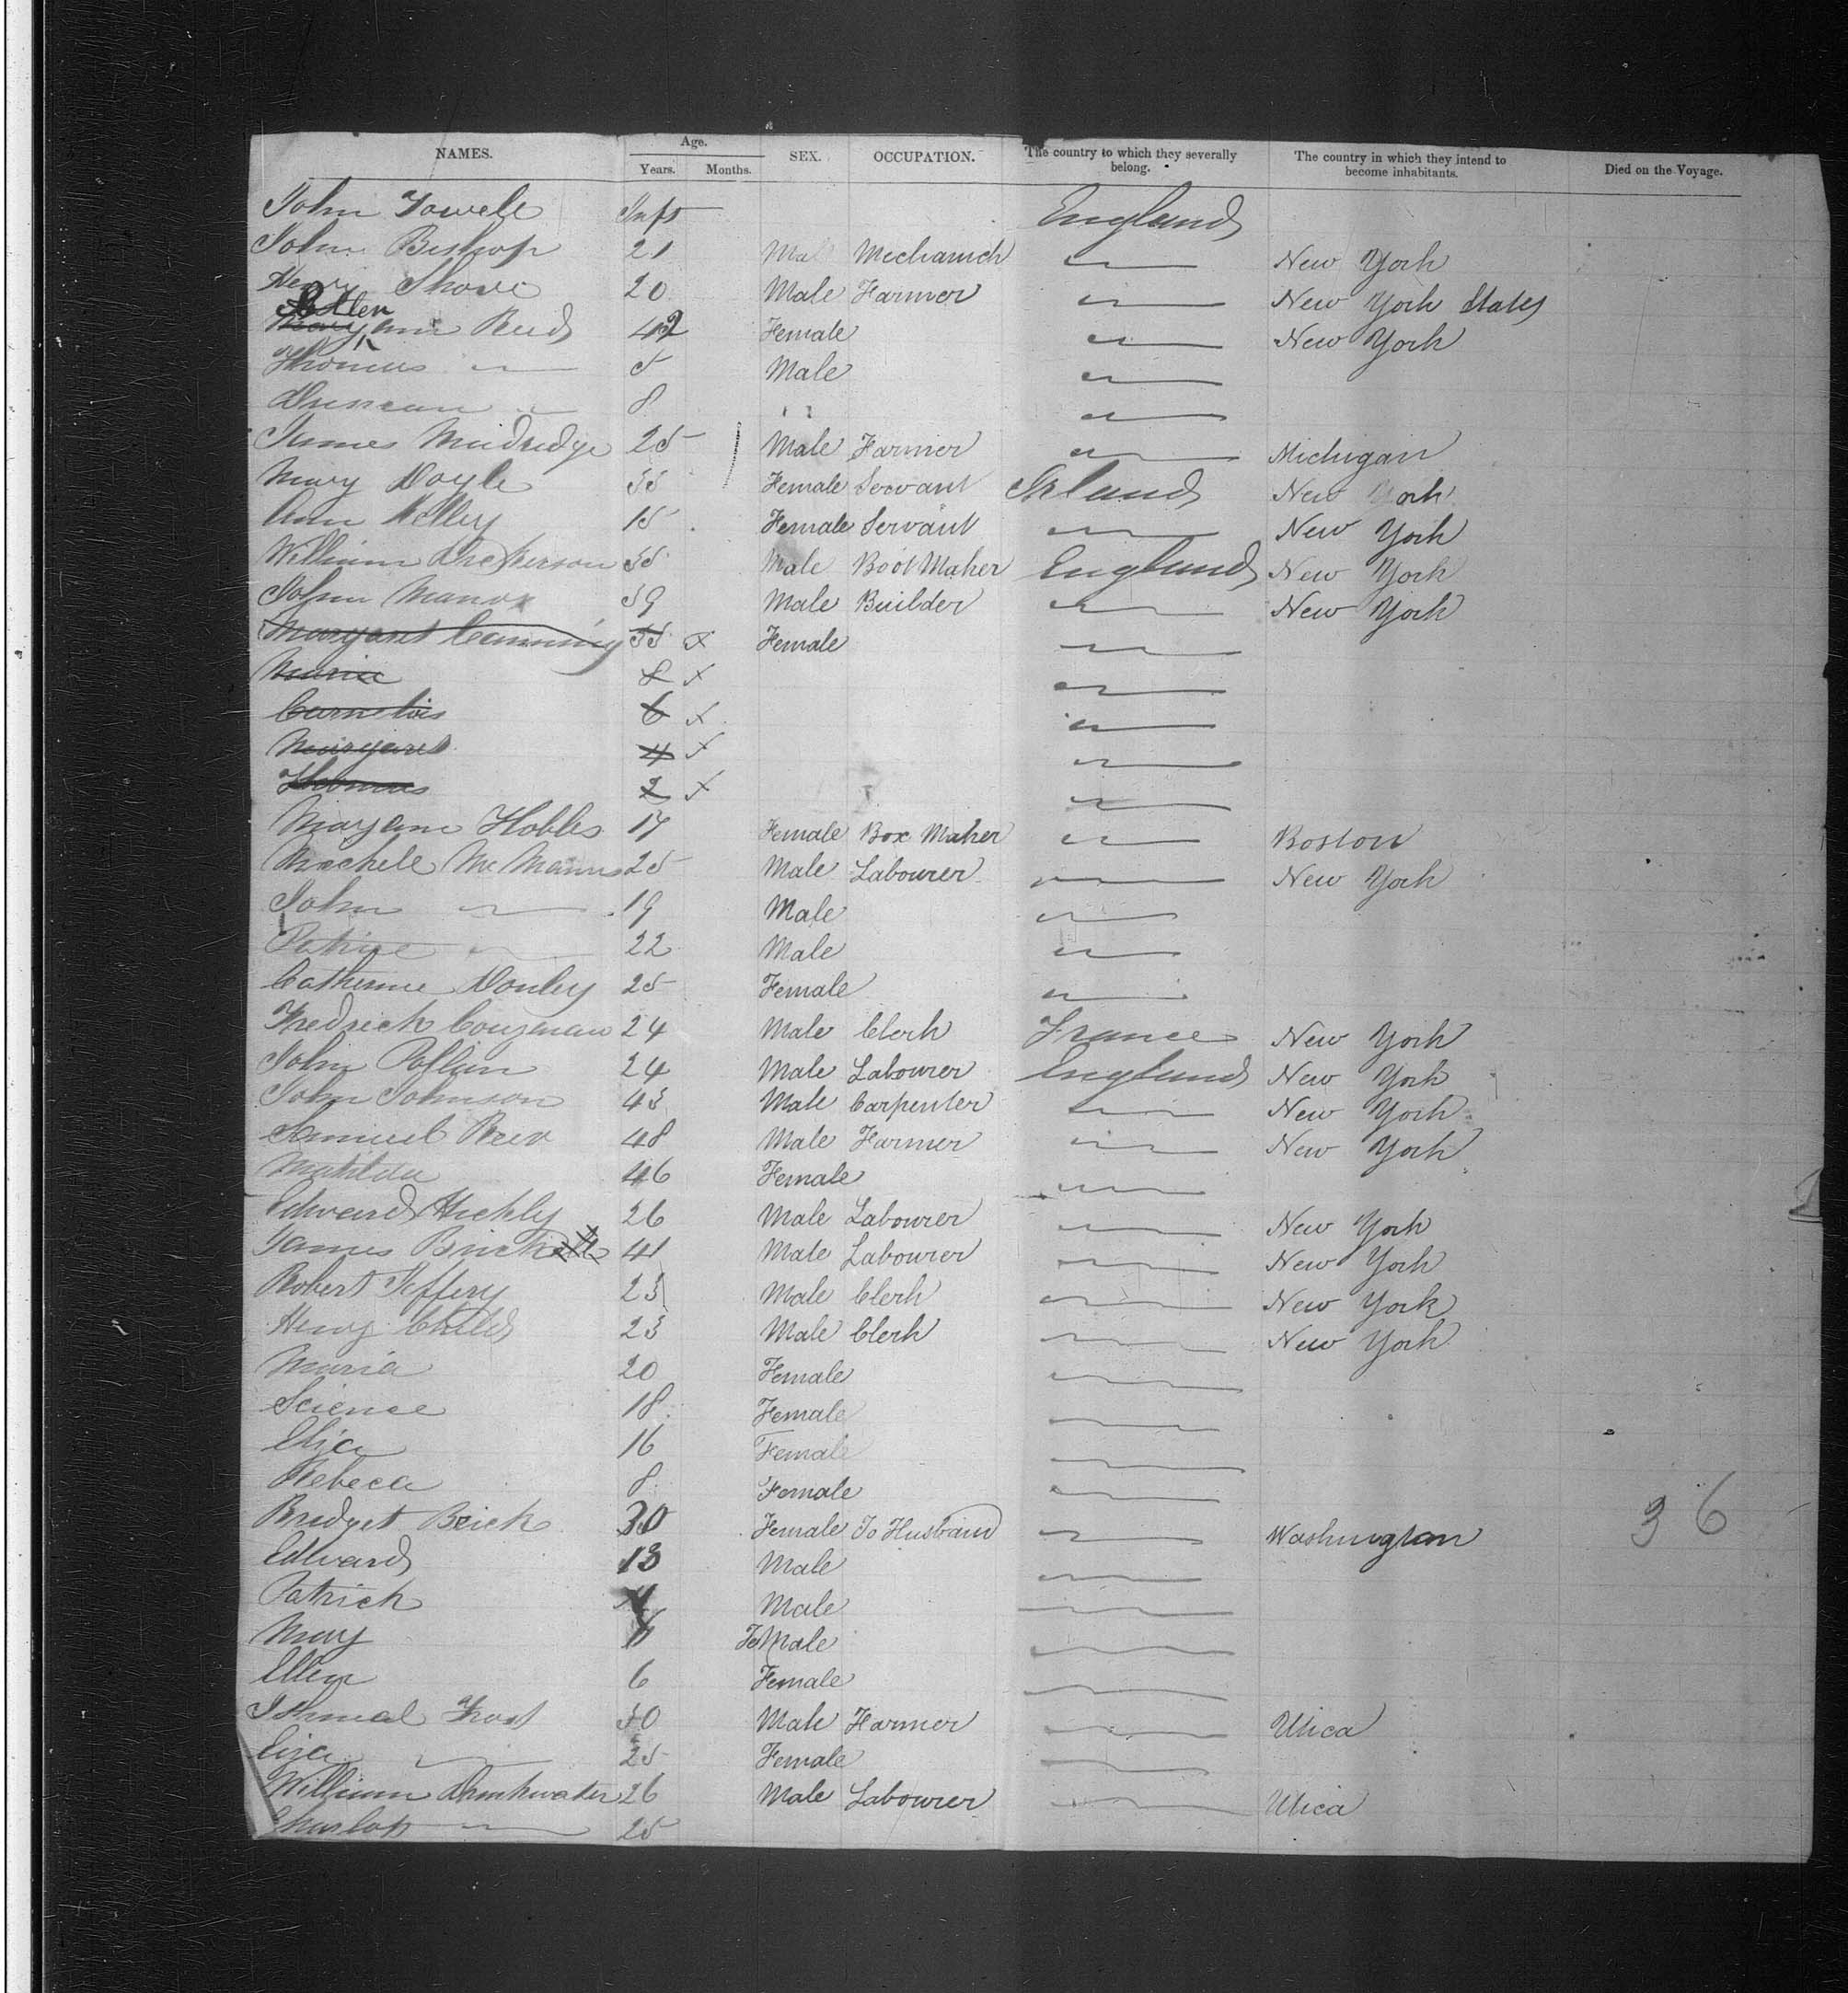 NAMES. Age. Years. Months. SEX. OCCUPATION. The country to which they severally belong. The country in which they intend to become inhabitants. Died on the Voyage.
John Towell Inft England
John Bishop 21 Male Mechanich New York
Henry Shove 20 Male Farmer New York States
Ellen Mary Ann Reed 42 Female New York
Thomas 5 Male
Duncan 8 "
James Muidredge 25 Male Farmer Michigan
Mary Doyle 35 Female Servant Irland New York
Ann Kelley 15 Female Servant New York
William Dickerson 35 Male Boot Maker England New York
John Manox 59 Male Builder New York
Margaret Cumming 35 x Female
Maria 8 x
Cornelius 6 x
Margaret 4 x
Thomas 2 x
Mary Ann Hobbs 17 Female Box Maker Boston
Machell McManus 25 Male Labourer New York
John 19 Male
Patrice 22 Male
Catherine Donley 25 Female
Fredrick 24 Male Clerk France New York
John 24 Male Labourer England New York
John Johnson 43 Male Carpenter New York
Samuel 48 Male Farmer New York
Matilda 46 Female
Edward Hickly 26 Male Labourer New York
James Brick 41 Male Labourer New York
Robert Jeffery 23 Male Clerk New York
Henry Child 23 Male Clerk New York
Maria 20 Female
Science 18 Female
Eliza 16 Female
Rebeca 8 Female
Bridget Brick 30 Female To Husband Washington 36
Edward 13 Male
Patrick Male
Mary FeMale
Ellen 6 Female
Ishmal Frost 30 Male Farmer Utica
Eliza 25 Female
William Drinkwater 26 Male Labourer Utica
Sharlot 25